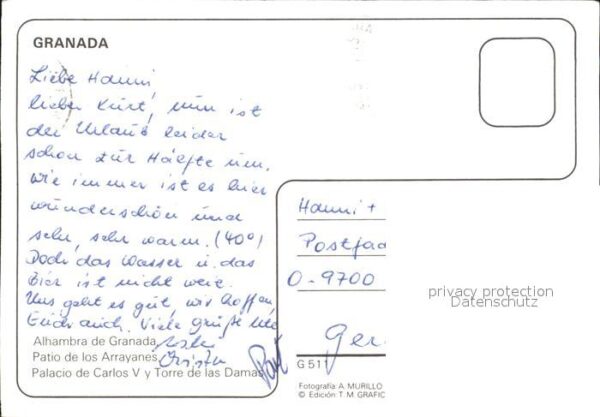 GRANADA
Liebe Hanni,
lieber Kurt, nun ist
der Urlaub leider
schon zur Hälfte um.
Wie immer ist es hier
wunderschön und
sehr, sehr warm. (40°)
Doch das Wasser u. das
Bier ist nicht weit.
Uns geht es gut, wir hoffen,
Euch auch. Viele Grüße
Hanni +
Postfac
O-9700
Ger
privacy protection
Datenschutz
Alhambra de Granada
Patio de los Arrayanes
Palacio de Carlos V y Torre de las Damas
G 511
Fotografía: A. MURILLO
© Edición: T.M. GRAFIC